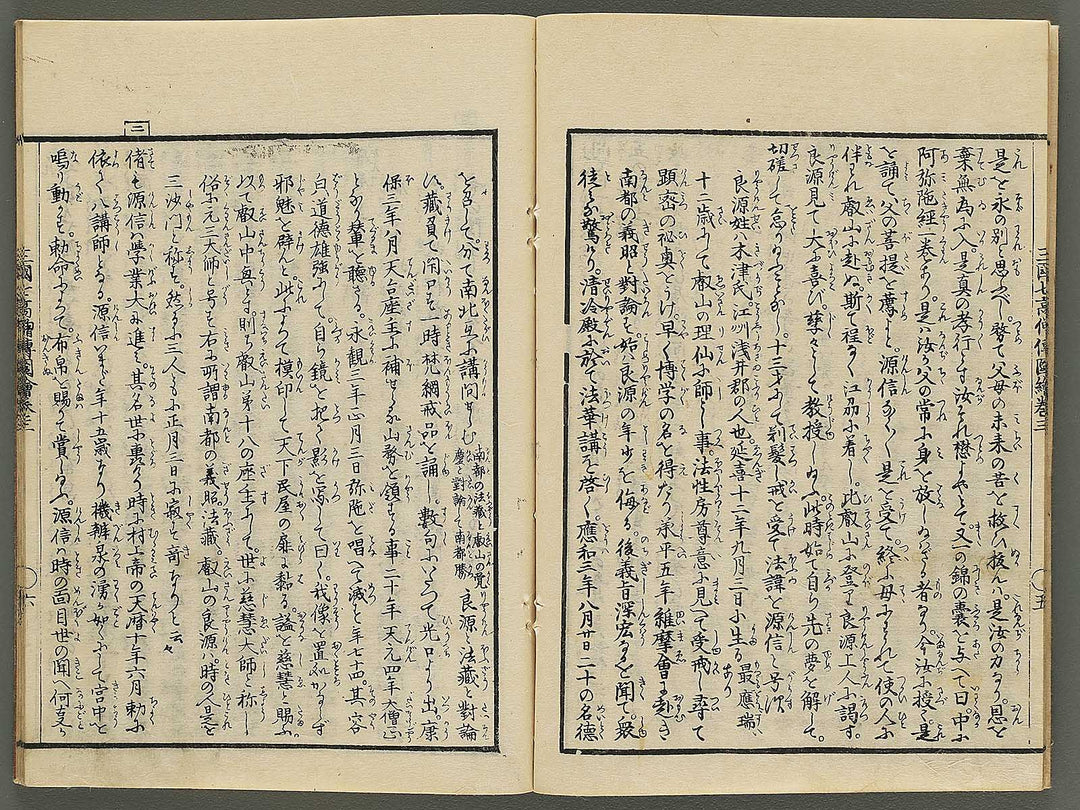 是を永の別と思ふべし。努々父母の未来の苦を救ひ抜んハ。是汝の力なり。恩を
棄無為ふ入。是真の孝行とす。汝それ懋しやとて。又一の錦の嚢を与へて曰。中ふ
阿弥陀経一巻あり。是ハ汝が父の常ふ身を放しゐざる者なり。今汝ふ授く。是
を誦て父の菩提を薦よと。源信なく〳〵是を受て。終ふ母ふわかれて使の人ふ
伴はれ叡山ふ赴ぬ。斯て程なく江州ふ着し。比叡山ふ登りて良源上人ふ謁す。
良源見て大ふ喜び。孳々として教授しゐふ。此時始て自ら先の夢を解して。
切磋して怠りゐハずとなり。十三才ふて剃髪戒を受て法諱を源信と号次
良源姓ハ木津氏。江州浅井郡の人也。延喜十二年九月三日ふ生る。最應瑞あり
十二歳ふして叡山の理仙ふ師とし事。法性房尊意ふ見へて受戒し。尋て
顕密の秘奥をうけ。早く博学の名を得たり。承平五年維摩會ふ赴き
南都の義照と對論す。始ハ良源の年少を侮る。後義旨深宏なるを聞て。衆
徒ミな驚けり。清冷殿ふ於て法華講を啓く。應和三年八月廿日二十の名徳
を召して分て南北互ふ講問せしむ
南都の法蔵と叡山の覚慶と對論して南都勝
良源ハ法蔵と對論
保三年八月天台座主ふ補せられ。山務を領する事二十年。天元四年大僧正
となり輦を聴る。永観三年正月三日弥陀を唱へて滅を年七十四。其容
白く道徳雄強ふして。自ら鏡を把て影を写して曰く。我像を置処かならず
邪魅を辟んと。此ふよつて模印して天下民屋の扉ふ黏る。謚を慈慧と賜ふ。
以て叡山中興とす。則ち叡山第十八の座主ふして。世ふ慈慧大師と称し
俗ふ元三大師と号す。右ふ所謂南都の義照。法蔵。叡山の良源ハ時の人是を
三沙門と称す。然るふ三人ともふ正月三日ふ寂す。奇なりと云々
偖も源信ハ學業大ふ進ミ。其名世ふ轟けり。時ふ村上帝の天暦十年六月。勅ふ
依て八講師となる。源信いまだ年十五歳なり。機辨泉の湧が如くふして。宮中を
鳴り動かす。勅命ふよつて。布帛を賜て賞しゐふ。源信ハ時の面目世の聞へ何事か
三國七高僧傳圖繪巻三
五
三國七高僧傳圖繪巻三
六
二